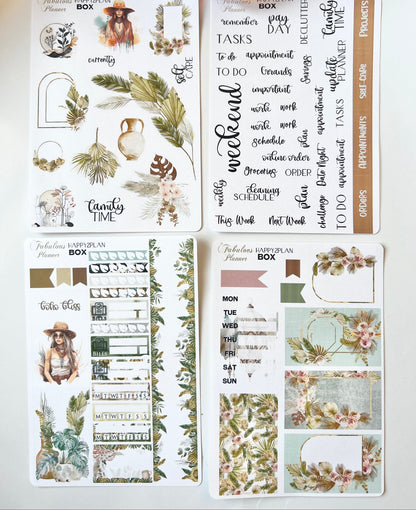 Fabulous
Planner
HAPPY2PLAN
BOX
currently
self
CARE
family
TIME
remember
pay
DAY
DECLUTTER
family
TIME
TASKS
to do
appointment
TO DO
Errands
Savings
update
PLANNER
important
weekend
work
work
work
work
plan
appointment
TASKS
Schedule
online order
Groceries
ORDER
plan
Date Night
weekly
cleaning
SCHEDULE
challenge
TO DO
appointment
This Week
Next Week
ORDERS
APPOINTMENTS
SELF CARE
PROJECTS
Fabulous
Planner
HAPPY2PLAN
BOX
boho bliss
BILLS
M T W T F S S
M T W T F S S
M T W T F S S
Fabulous
Planner
HAPPY2PLAN
BOX
MON
TUE
WED
THU
FRI
SAT
SUN